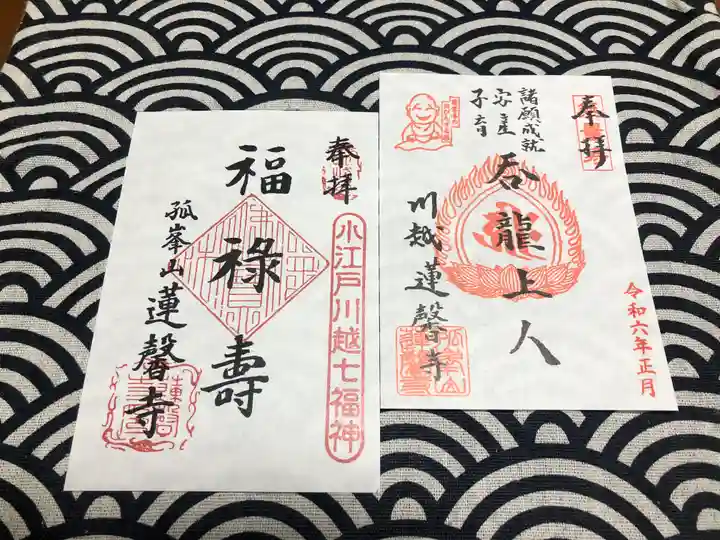 奉拝
諸願成就
安産
子育
呑龍上人
川越蓮馨寺
令和六年正月
奉拝
小江戸川越七福神
福禄壽
孤峯山
蓮馨寺